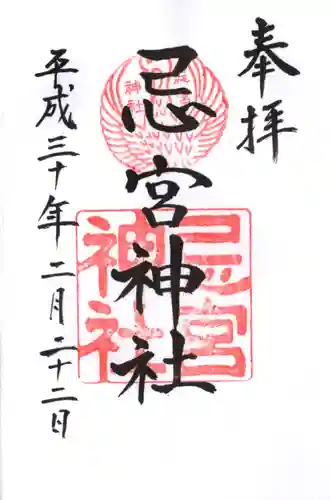 奉拝
忌宮神社
平成三十年二月二十二日
忌宮
神社